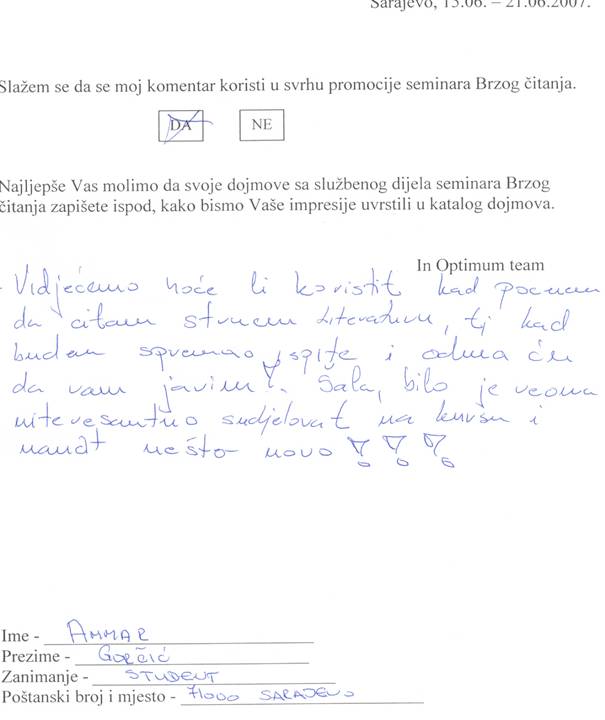 Sarajevo, 15.06. – 21.06.2007.
Slažem se da se moj komentar koristi u svrhu promocije seminara Brzog čitanja.
DA NE
Najljepše Vas molimo da svoje dojmove sa službenog dijela seminara Brzog
čitanja zapišete ispod, kako bismo Vaše impresije uvrstili u katalog dojmova.
In Optimum team
Vidjećemo hoće li koristit kad počnem
da čitam strucnu literaturu, tj kad
budem spremao ispite i odma ću
da vam javim!. Šala, bilo je veoma
interesantno sudjelovat na kursu i
naučit nešto novo !!!
Ime - AMMAR
Prezime - GORČIĆ
Zanimanje - STUDENT
Poštanski broj i mjesto - 71000 SARAJEVO